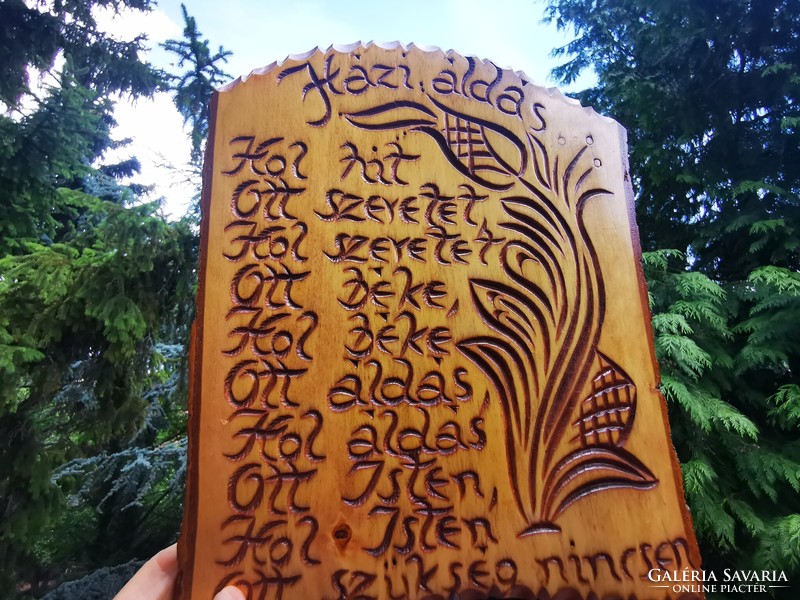 Házi áldás
Hol hit
Ott szeretet,
Hol szeretet
Ott Béke,
Hol Béke
Ott áldás,
Hol áldás,
Ott Isten,
Hol Isten
Ott szükség nincsen
GALÉRIA SAVARIA
ONLINE PIACTÉR